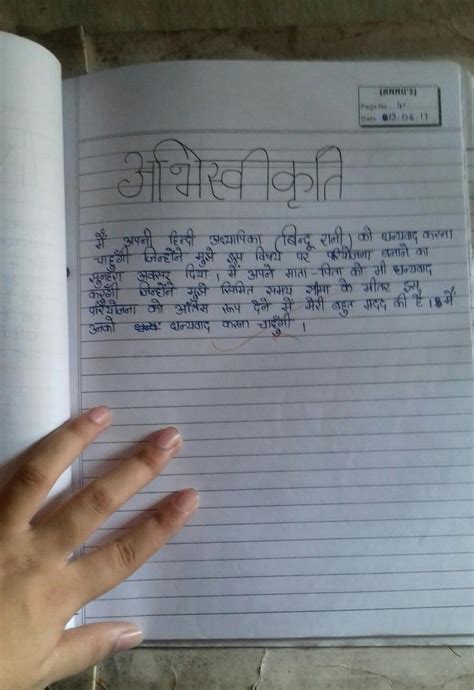 (ANAO'S)
Page No. 4
Date 13.06.17
अभिस्वीकृति
मैं अपनी हिन्दी अध्यापिका (बिन्दू रानी) को धन्यवाद करना
चाहूँगी जिन्होंने मुझे इस विषय पर परियोजना बनाने का
सुनहरा अवसर दिया। मैं अपने माता-पिता को भी धन्यवाद
करूँगी जिन्होंने मुझे सिमित समय सीमा के भीतर इस
परियोजना को अंतिम रूप देने में मेरी बहुत मदद की है। मैं
उनको धन्यवाद करना चाहूँगी ।